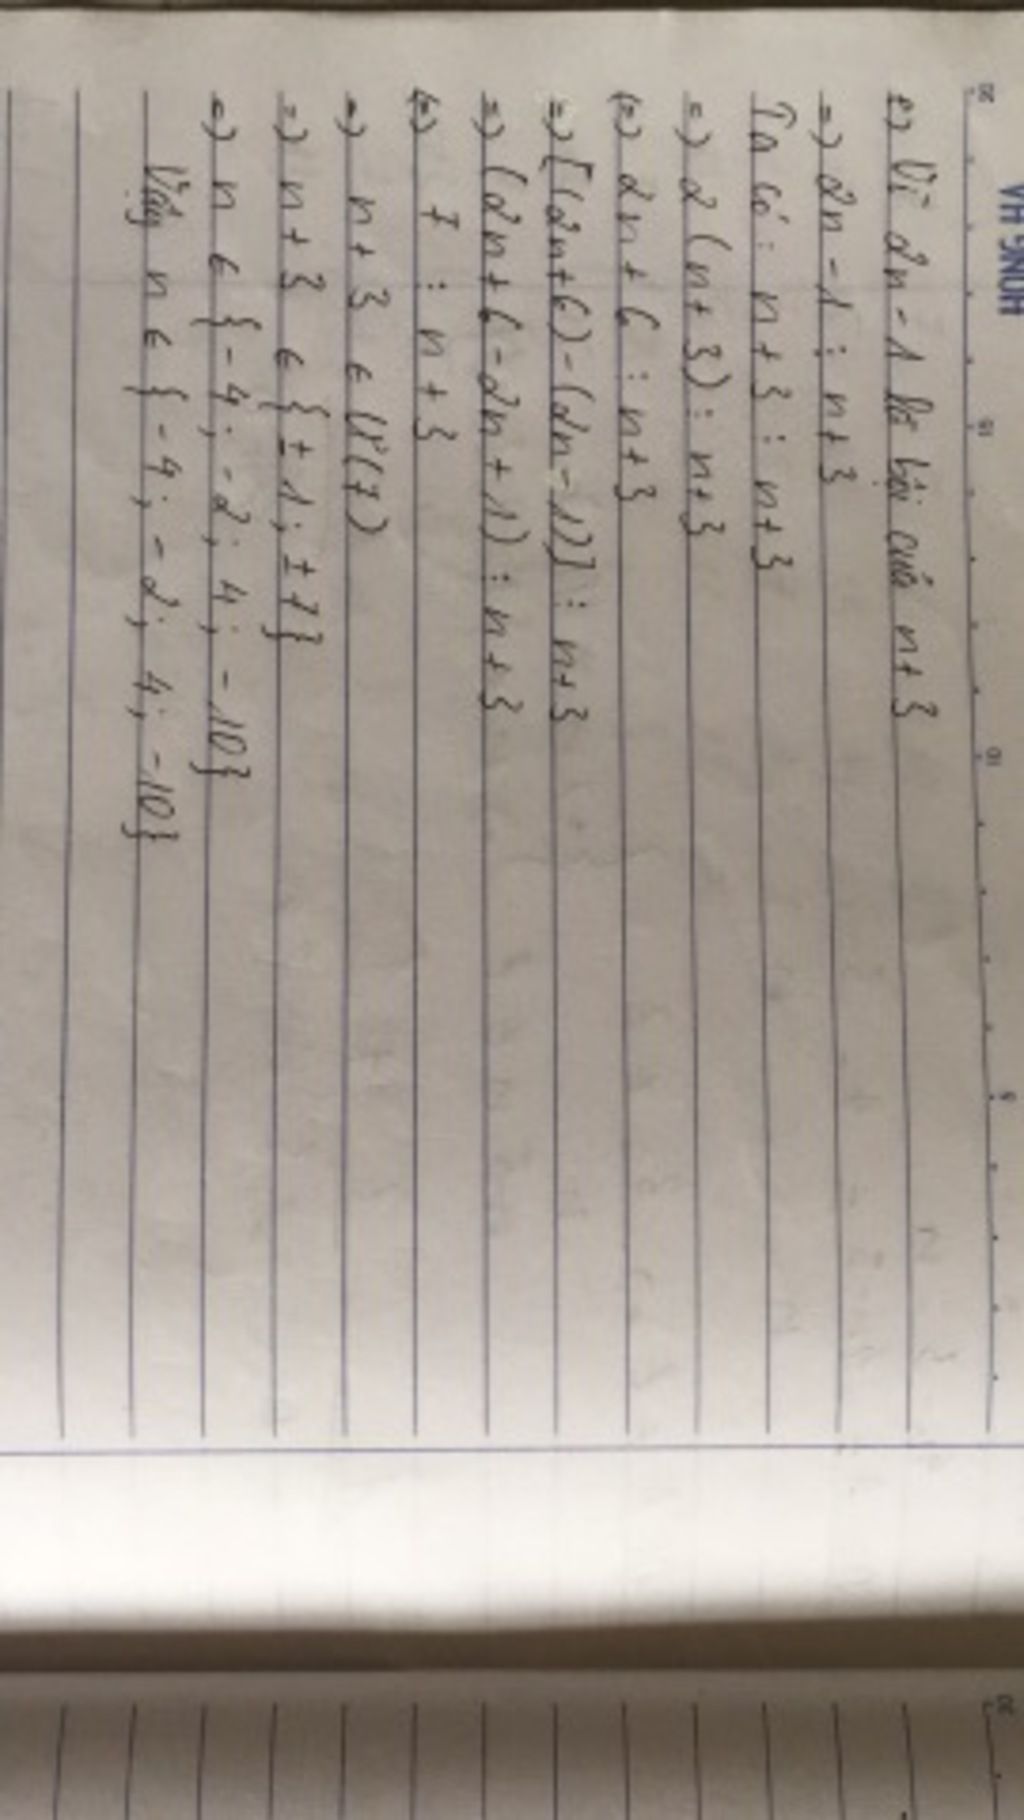 VH SNOH
20 15 10 5
e) Vì 2n - 1 là bội của n + 3
=) 2n - 1 ⋮ n + 3
Ta có : n + 3 ⋮ n + 3
=) 2 (n + 3) ⋮ n + 3
(=) 2n + 6 ⋮ n + 3
=) [(2n + 6) - (2n - 1)] ⋮ n + 3
=) (2n + 6 - 2n + 1) ⋮ n + 3
(=) 7 ⋮ n + 3
=) n + 3 ∈ Ư(7)
=) n + 3 ∈ {± 1 ; ± 7}
=) n ∈ {- 4 ; - 2 ; 4 ; - 10}
Vậy n ∈ {- 4 ; - 2 ; 4 ; - 10}